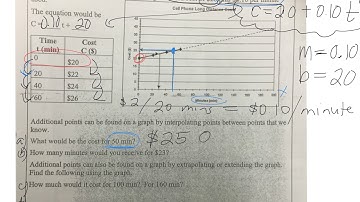 The equation would be
C = 0.10 t + 20
Cell Phone Long Distance Cost
C = 20 + 0.10 t
m = 0.10
b = 20
Time Cost
t (min) C ($)
0 $20
20 $22
40 $24
60 $26
$2/20 min = $0.10/minute
Additional points can be found on a graph by interpolating points between points that we
know.
a) What would be the cost for 50 min? $25
b) How many minutes would you receive for $23?
Additional points can also be found on a graph by extrapolating or extending the graph.
Find the following using the graph.
c) How much would it cost for 100 min? For 160 min?